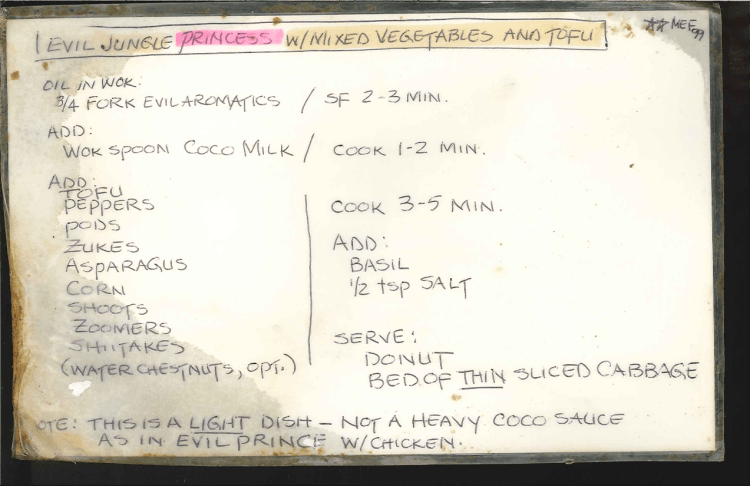 EVIL JUNGLE PRINCESS W/MIXED VEGETABLES AND TOFU
** MEE '99
OIL IN WOK:
3/4 FORK EVIL AROMATICS / SF 2-3 MIN.
ADD:
WOK SPOON COCO MILK / COOK 1-2 MIN.
ADD:
TOFU
PEPPERS
PODS
ZUKES
ASPARAGUS
CORN
SHOOTS
ZOOMERS
SHIITAKES
(WATER CHESTNUTS, OPT.)
COOK 3-5 MIN.
ADD:
BASIL
1/2 tsp SALT
SERVE:
DONUT
BED OF THIN SLICED CABBAGE
OTE: THIS IS A LIGHT DISH - NOT A HEAVY COCO SAUCE
AS IN EVIL PRINCE W/CHICKEN.